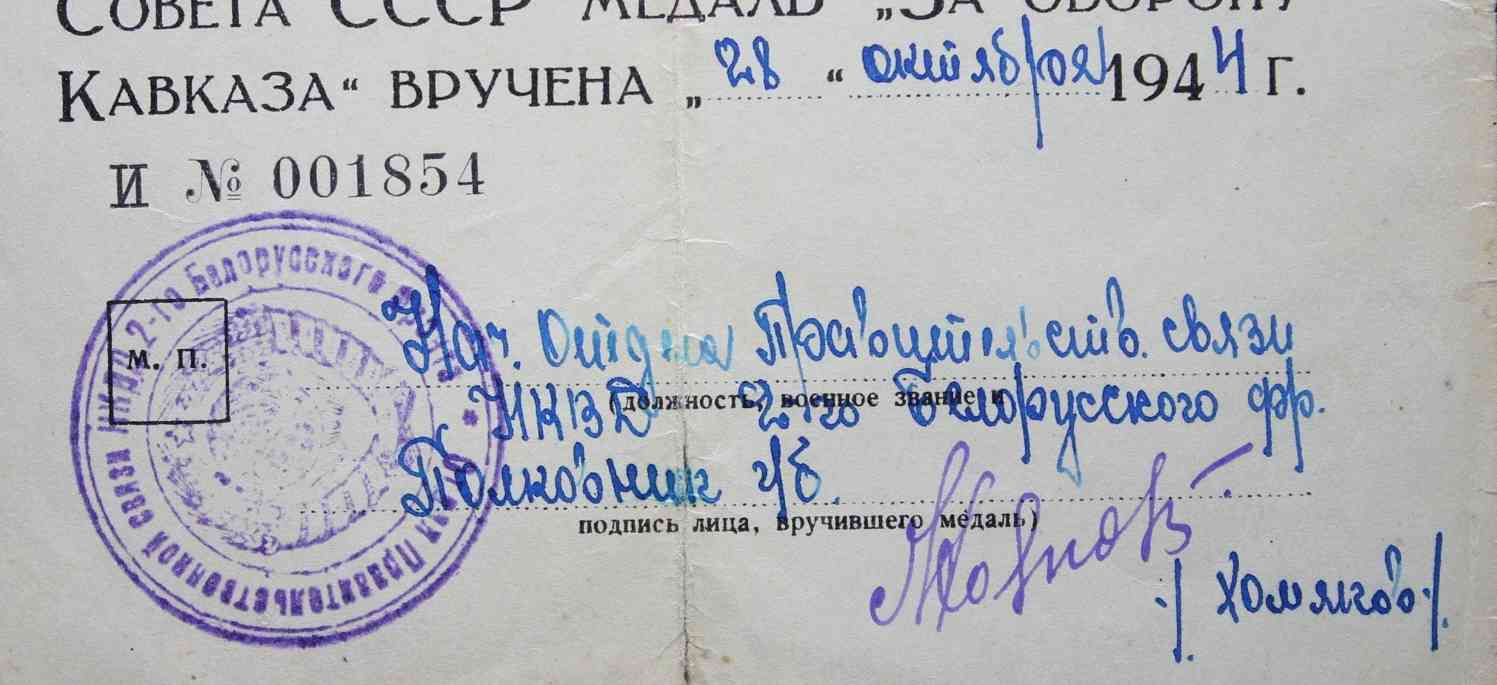 СОВЕТА СССР МЕДАЛЬ „ЗА ОБОРОНУ
КАВКАЗА“ ВРУЧЕНА „28“ октября 1944 г.
И № 001854
М. П.
НКВД 2-го Белорусского
Правительственной связи
Нач. Отдела Правительств. связи
(должность, военное звание и
НКВД 2-го Белорусского фр.
Полковник г/б.
подпись лица, вручившего медаль)
/Хомяков/.